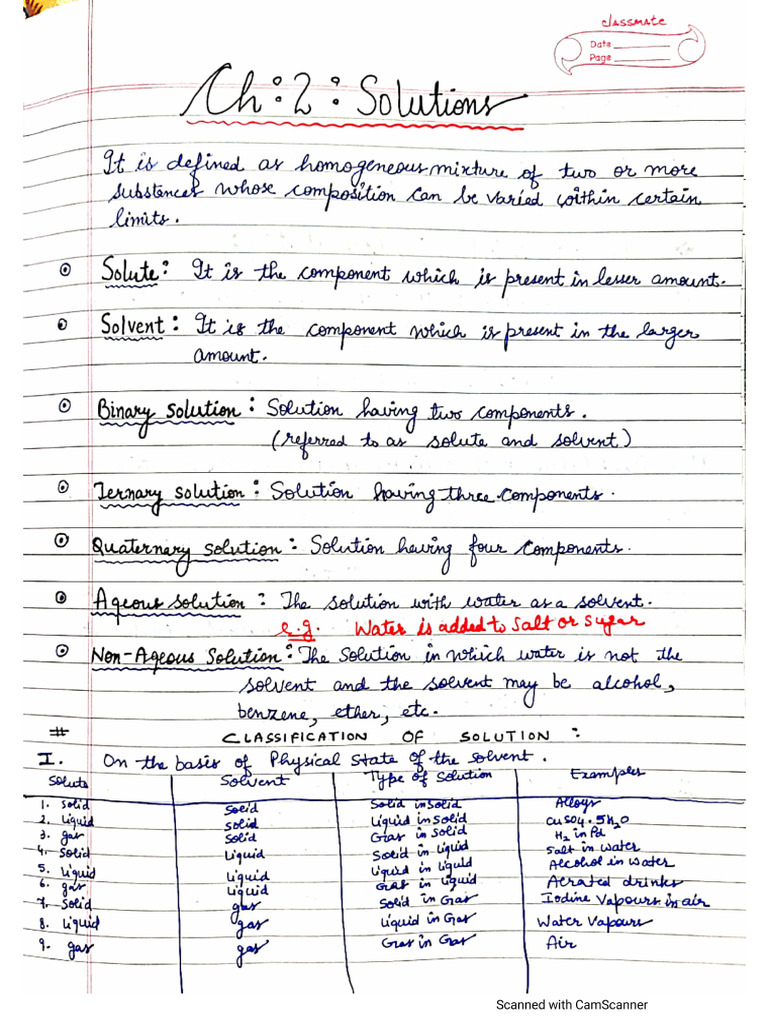 classmate
Date
Page
Ch: 2: Solutions
It is defined as homogeneous mixture of two or more
substances whose composition can be varied within certain
limits.
Solute: It is the component which is present in lesser amount.
Solvent: It is the component which is present in the larger
amount.
Binary solution: Solution having two components.
(referred to as solute and solvent)
Ternary solution: Solution having three components.
Quaternary solution: Solution having four components.
Aqeous solution: The solution with water as a solvent.
e.g. Water is added to Salt or Sugar
Non-Aqeous Solution: The Solution in which water is not the
solvent and the solvent may be alcohol,
benzene, ether, etc.
# CLASSIFICATION OF SOLUTION :
I. On the basis of Physical State of the solvent.
Solute Solvent Type of Solution Examples
1. Solid Solid Solid in Solid Alloys
2. Liquid Solid Liquid in Solid CuSO4.5H2O
3. gas Solid Gas in Solid H2 in Pd
4. Solid Liquid Solid in Liquid Salt in water
5. Liquid Liquid Liquid in Liquid Alcohol in water
6. gas Liquid Gas in Liquid Aerated drinks
7. Solid gas Solid in Gas Iodine Vapours in air
8. Liquid gas Liquid in Gas Water Vapours
9. gas gas Gas in Gas Air
Scanned with CamScanner